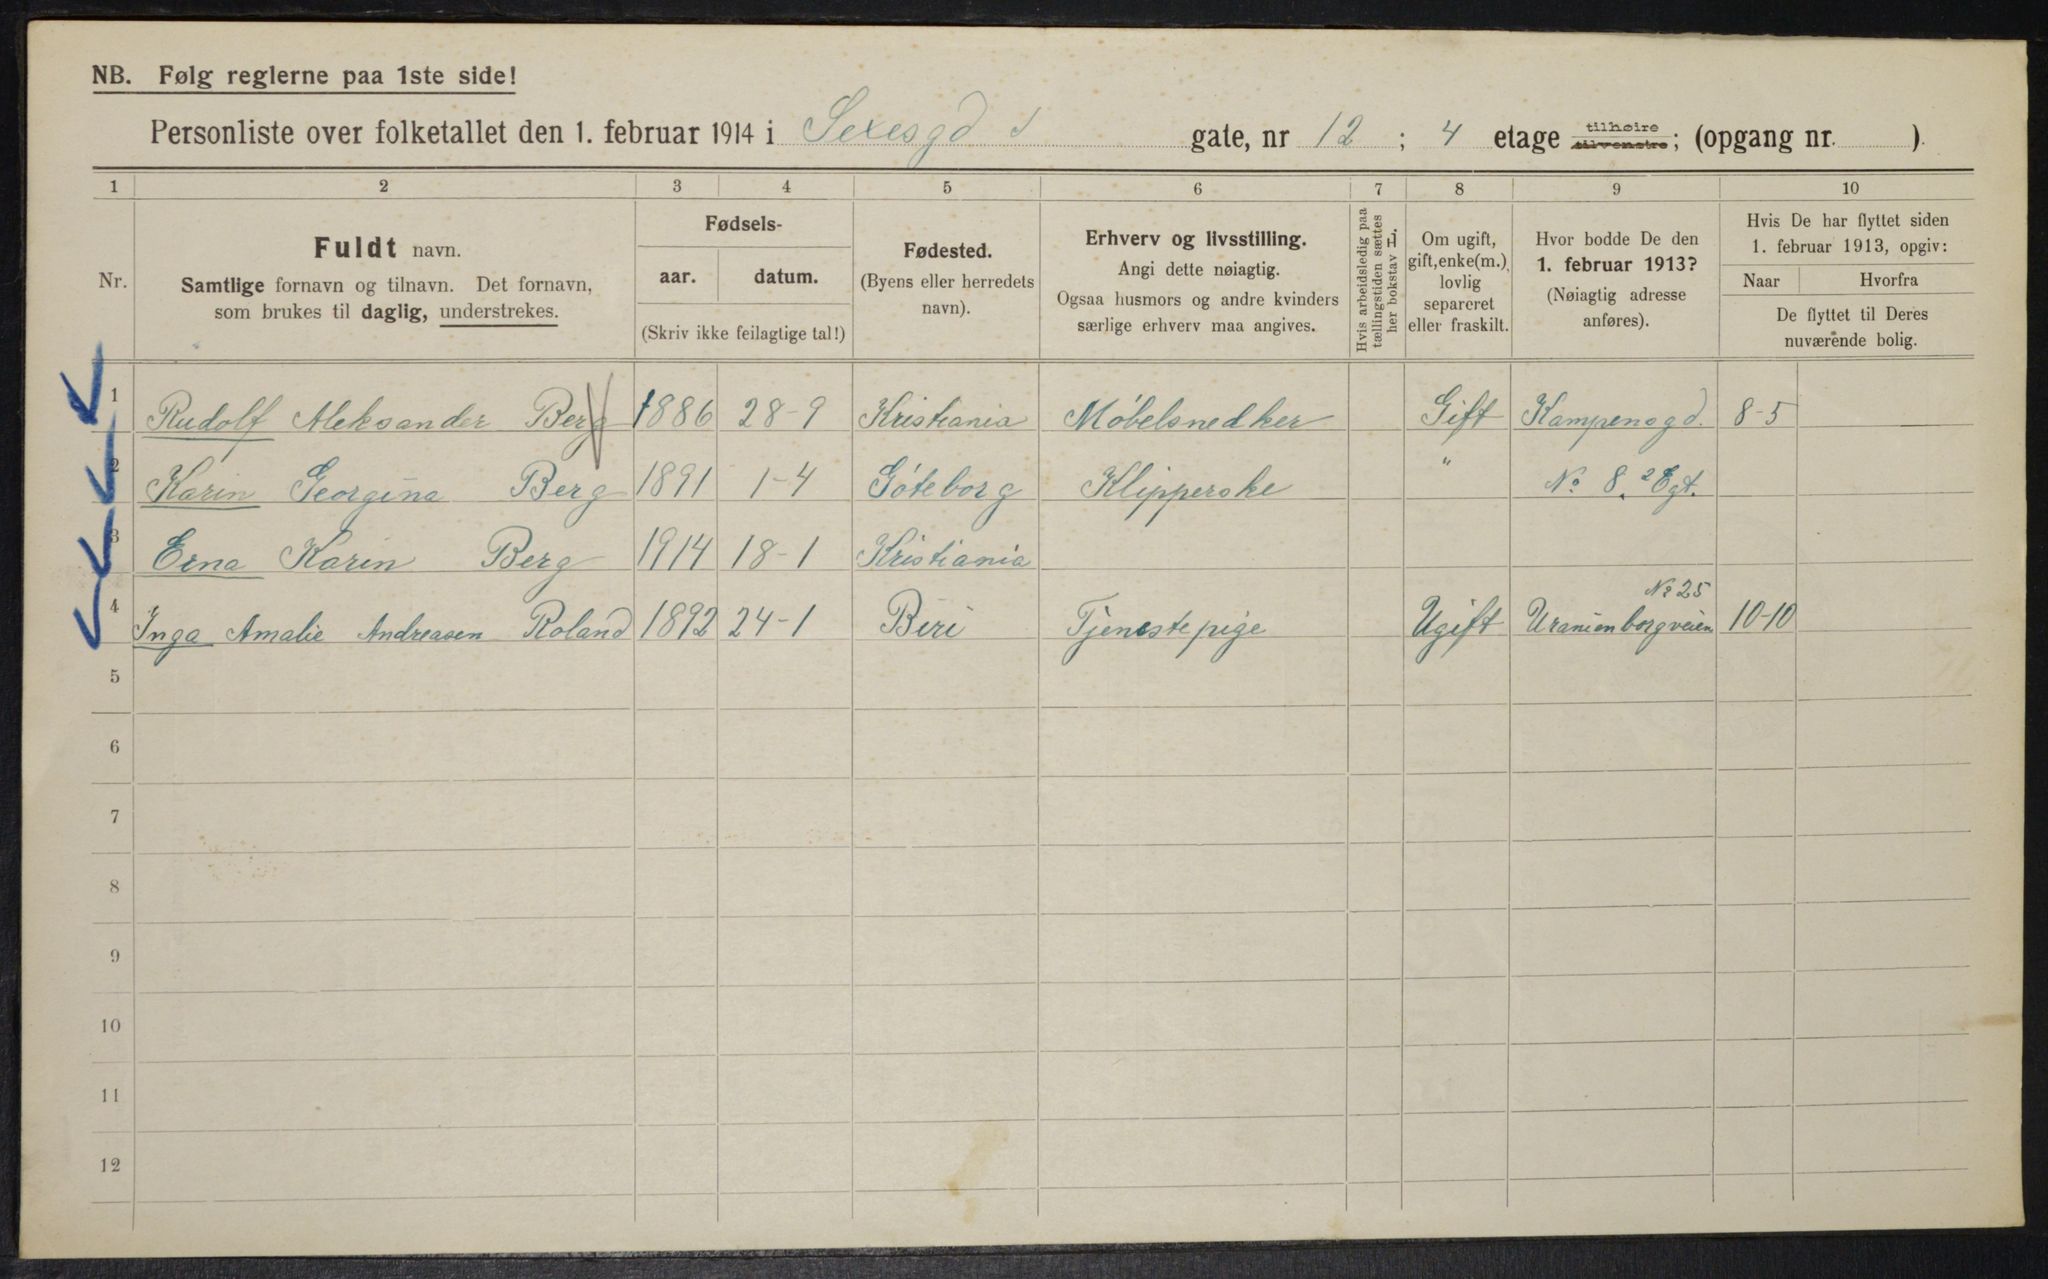 NB. Følg reglerne paa 1ste side!
Personliste over folketallet den 1. februar 1914 i Sexesgd gate, nr 12 ; 4 etage tilhøire tilvenstre; (opgang nr. ).
1 2 3 4 5 6 7 8 9 10
Nr.
Fuldt navn.
Samtlige fornavn og tilnavn. Det fornavn,
som brukes til daglig, understrekes.
Fødsels-
aar. datum.
(Skriv ikke feilagtige tal!)
Fødested.
(Byens eller herredets
navn).
Erhverv og livsstilling.
Angi dette nøiagtig.
Ogsaa husmors og andre kvinders
særlige erhverv maa angives.
Hvis arbeidsledig paa
tællingstiden sættes
her bokstav L.
Om ugift,
gift, enke(m.),
lovlig
separeret
eller fraskilt.
Hvor bodde De den
1. februar 1913?
(Nøiagtig adresse
anføres).
Hvis De har flyttet siden
1. februar 1913, opgiv:
Naar Hvorfra
De flyttet til Deres
nuværende bolig.
1 Rudolf Aleksander Berg 1886 28-9 Kristiania Møbelsnedker Gift Kampensgd. 8-5
2 Karin Georgina Berg 1891 1-4 Göteborg Klipperske " No 8. 2 Egt.
3 Erna Karin Berg 1914 18-1 Kristiania
No 25
4 Inga Amalie Andreasen Roland 1892 24-1 Biri Tjenestepige Ugift Uranienborgveien 10-10
5
6
7
8
9
10
11
12